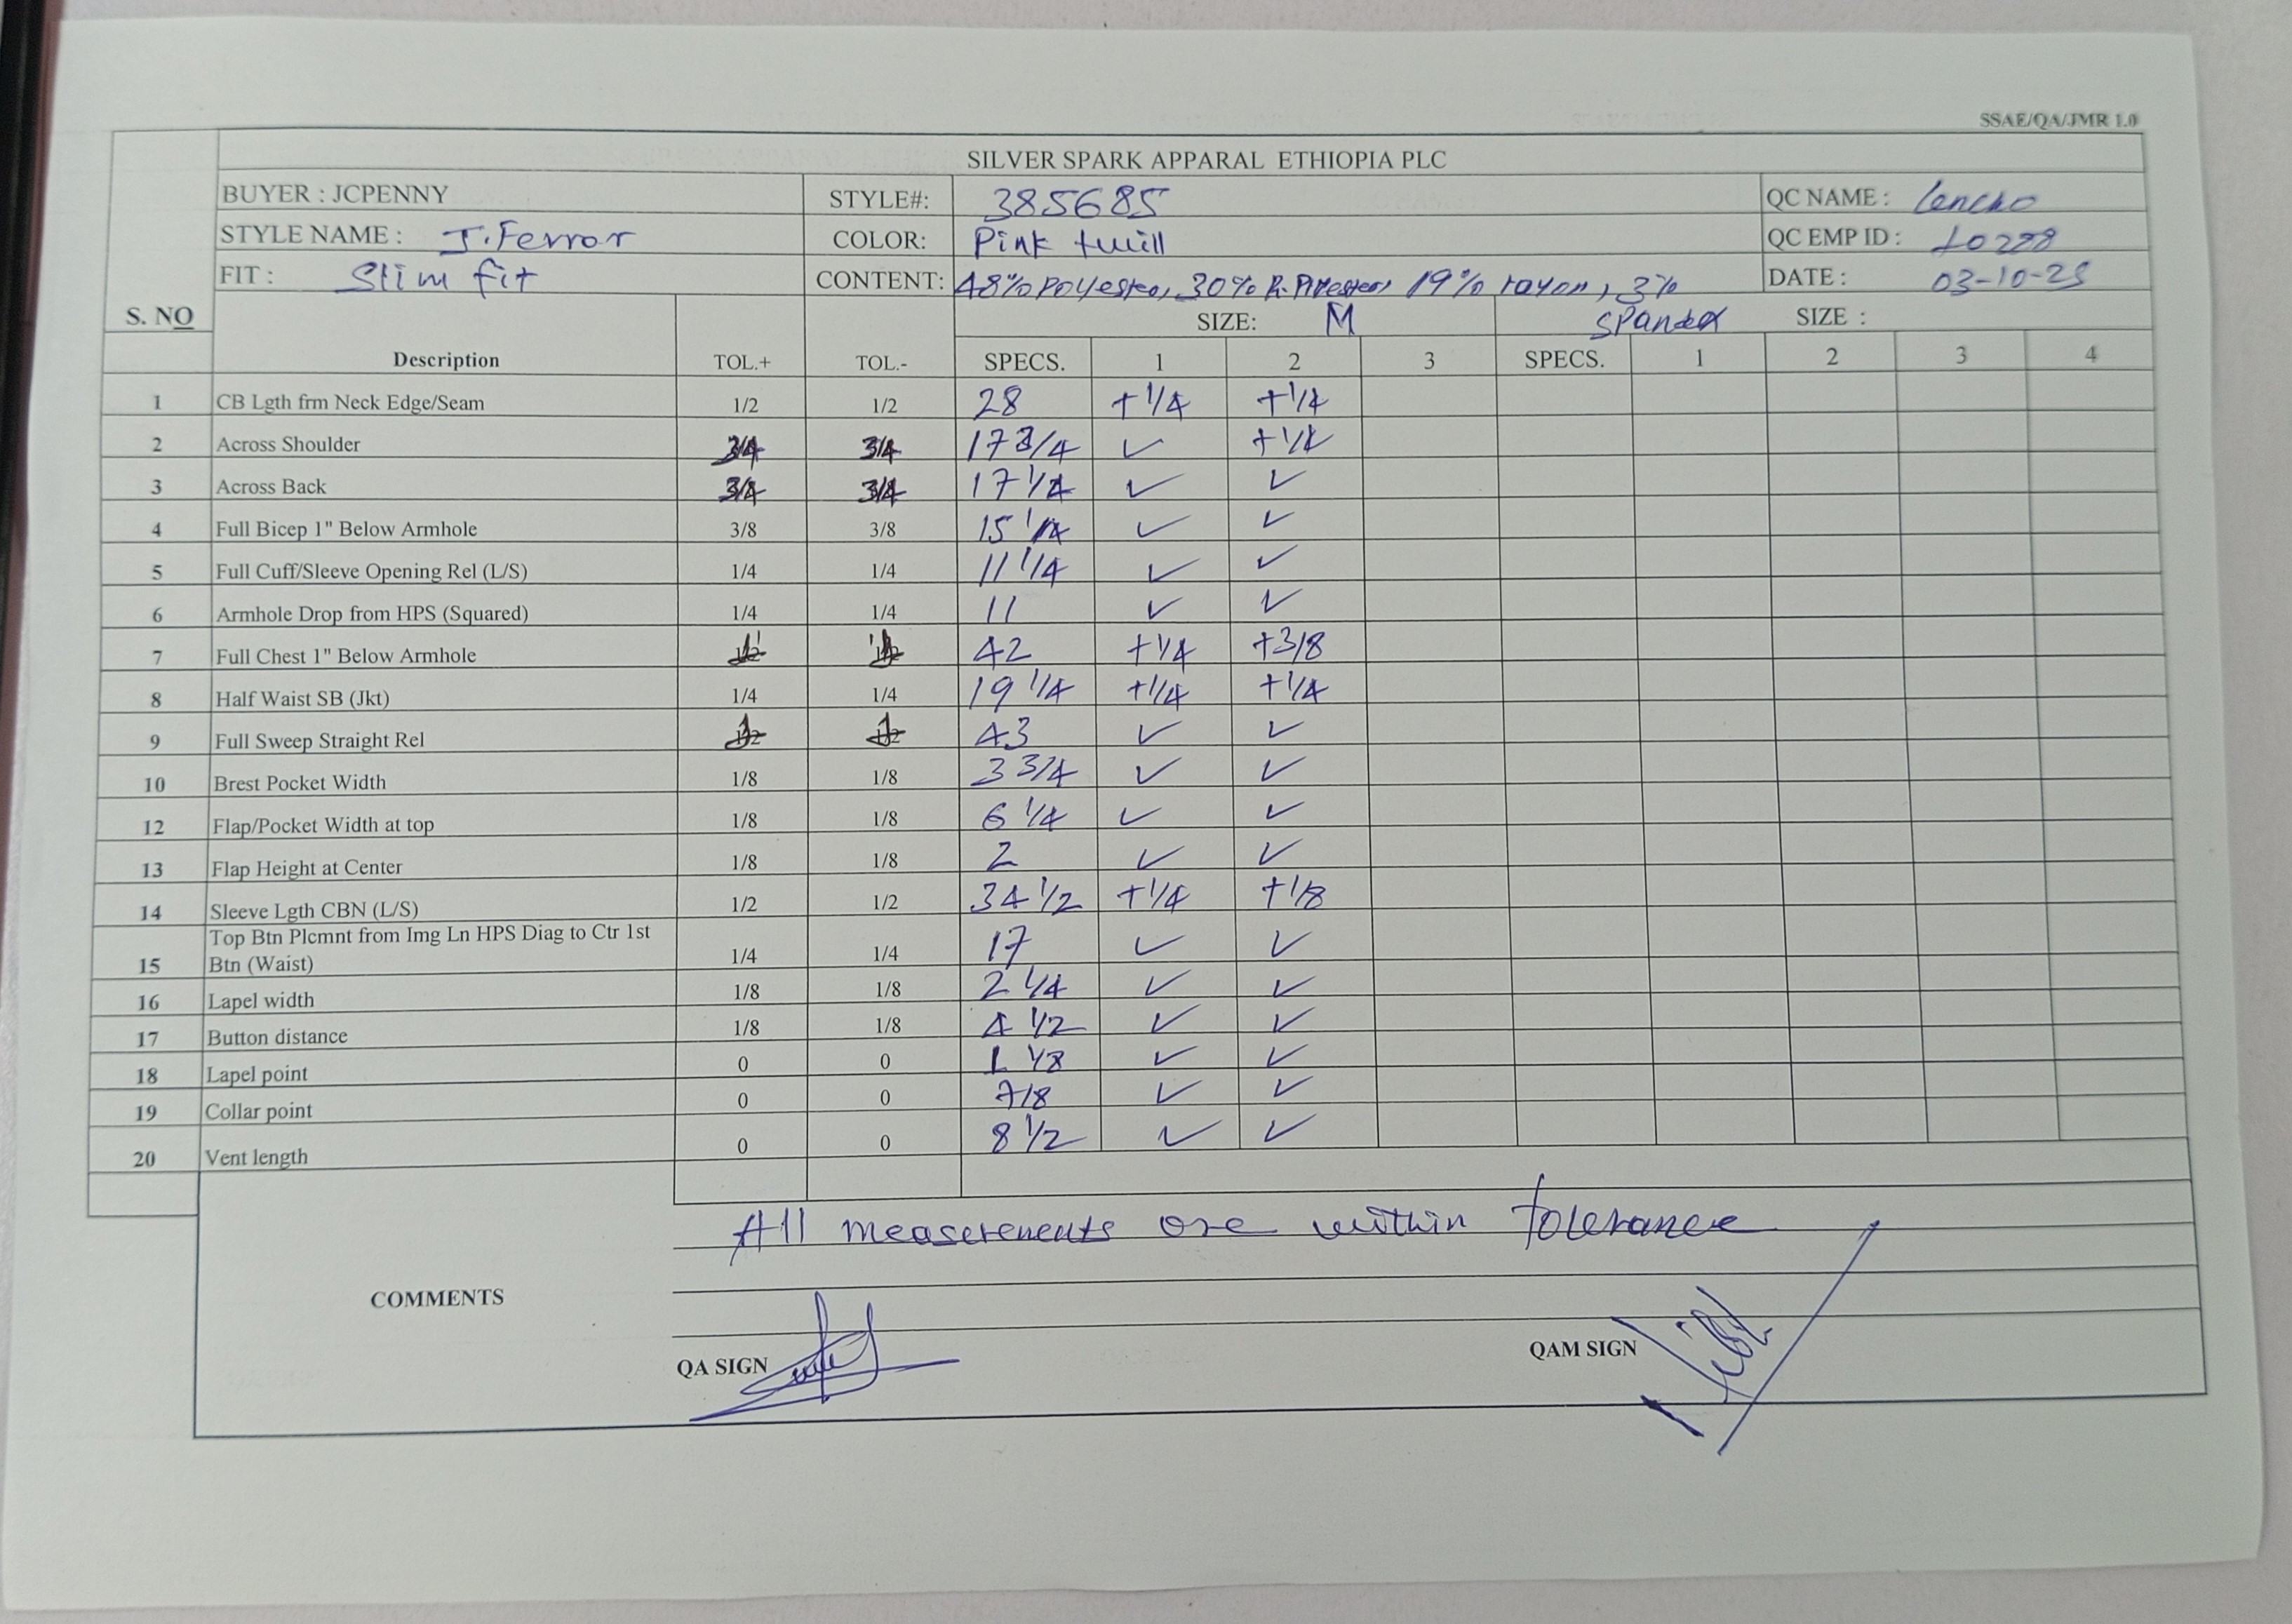 SSAE/QA/JMR 1.0
SILVER SPARK APPARAL ETHIOPIA PLC
BUYER : JCPENNY STYLE#: 385685 QC NAME : Lencho
STYLE NAME : J.Ferror COLOR: Pink twill QC EMP ID :
FIT : Slim fit CONTENT: 48% Polyester, 30% R. Polyester, 19% rayon, 3% DATE : 03-10-25
S. NO SIZE: M Spandex SIZE :
Description TOL.+ TOL.- SPECS. 1 2 3 SPECS. 1 2 3 4
1 CB Lgth frm Neck Edge/Seam 1/2 1/2 28 +1/4 +1/4
2 Across Shoulder 3/4 3/4 17 3/4 ✓ +1/4
3 Across Back 3/4 3/4 17 1/4 ✓ ✓
4 Full Bicep 1" Below Armhole 3/8 3/8 15 1/4 ✓ ✓
5 Full Cuff/Sleeve Opening Rel (L/S) 1/4 1/4 11 1/4 ✓ ✓
6 Armhole Drop from HPS (Squared) 1/4 1/4 11 ✓ ✓
7 Full Chest 1" Below Armhole 42 +1/4 +3/8
8 Half Waist SB (Jkt) 1/4 1/4 19 1/4 +1/4 +1/4
9 Full Sweep Straight Rel 43 ✓ ✓
10 Brest Pocket Width 1/8 1/8 3 3/4 ✓ ✓
12 Flap/Pocket Width at top 1/8 1/8 6 1/4 ✓ ✓
13 Flap Height at Center 1/8 1/8 2 ✓ ✓
14 Sleeve Lgth CBN (L/S) 1/2 1/2 34 1/2 +1/4 +1/8
Top Btn Plcmnt from Img Ln HPS Diag to Ctr 1st
15 Btn (Waist) 1/4 1/4 17 ✓ ✓
16 Lapel width 1/8 1/8 2 1/4 ✓ ✓
17 Button distance 1/8 1/8 4 1/2 ✓ ✓
18 Lapel point 0 0 1 1/8 ✓ ✓
19 Collar point 0 0 7/8 ✓ ✓
20 Vent length 0 0 8 1/2 ✓ ✓
All measerements are within Tolerance
COMMENTS
QA SIGN QAM SIGN